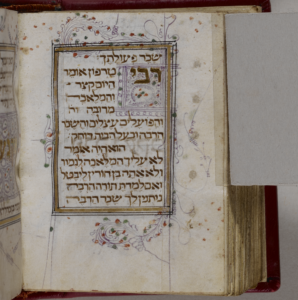 שכר פעולתך
רבי טרפון אומר
היום קצר
והמלאכה
מרובה וה
והפועלים עצלים והשכר
הרבה ובעל הבית דוחק
הוא היה אומר
לא עליך המלאכה לגמור
ולא אתה בן חורין ליבטל
ואם למדת תורה הרבה
נותנין לך שכר הרבה